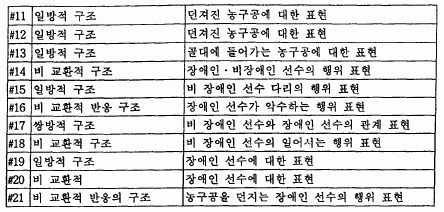 #11 일방적 구조 던져진 농구공에 대한 표현
#12 일방적 구조 던져진 농구공에 대한 표현
#13 일방적 구조 골대에 들어가는 농구공에 대한 표현
#14 비 교환적 구조 장애인·비장애인 선수의 행위 표현
#15 일방적 구조 비 장애인 선수 다리의 행위 표현
#16 비 교환적 반응 구조 장애인 선수가 악수하는 행위 표현
#17 쌍방적 구조 비 장애인 선수와 장애인 선수의 관계 표현
#18 비 교환적 구조 비 장애인 선수의 일어서는 행위 표현
#19 일방적 구조 장애인 선수에 대한 표현
#20 비 교환적 장애인 선수에 대한 표현
#21 비 교환적 반응의 구조 농구공을 던지는 장애인 선수의 행위 표현